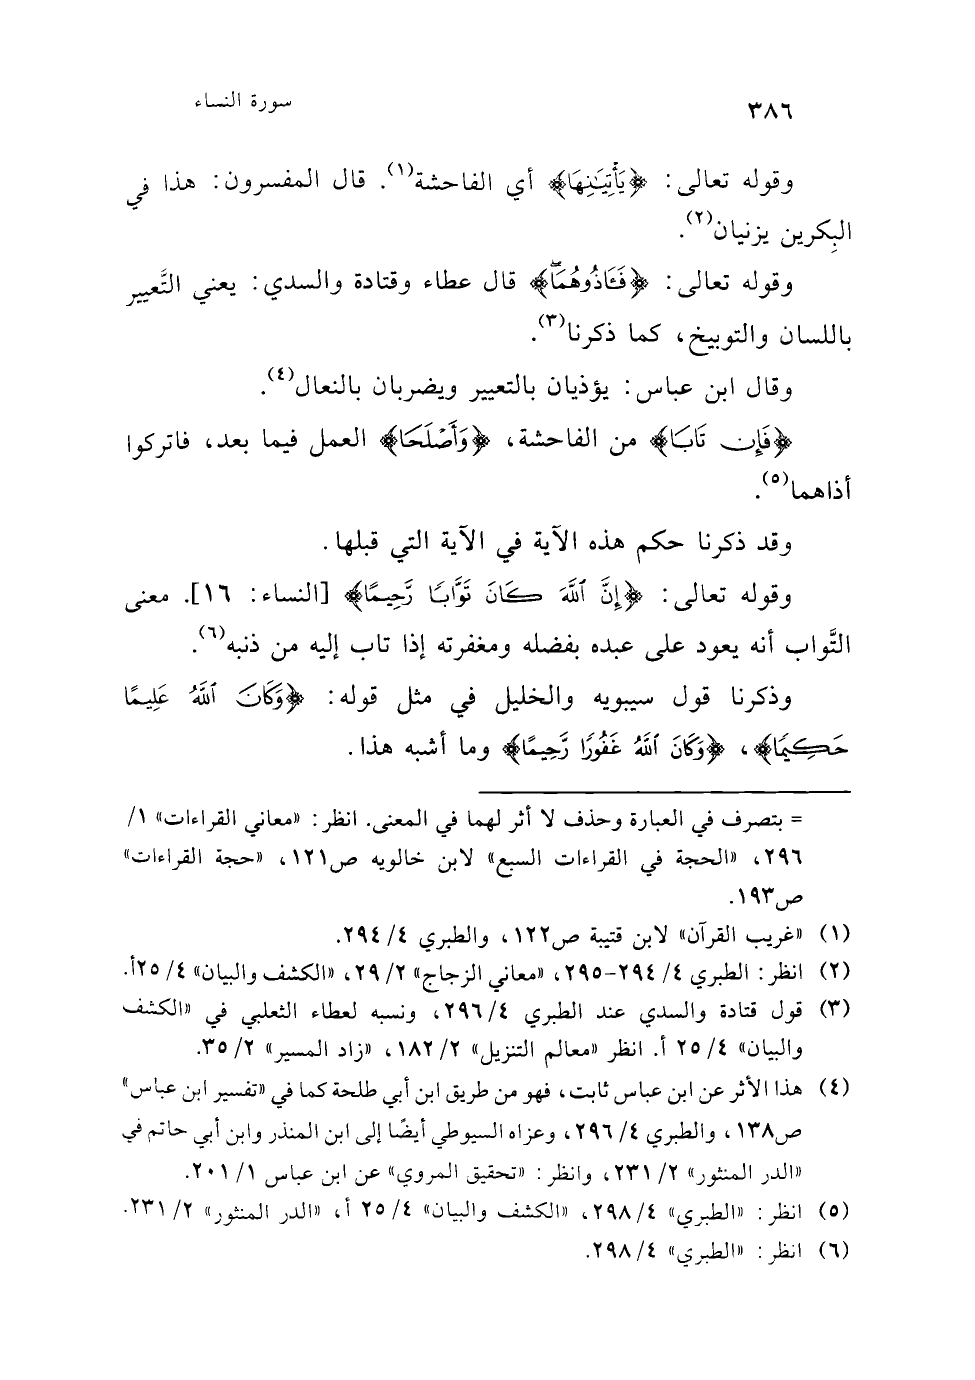 ٣٨٦
سورة النساء
وقوله تعالى: ﴿يَأْتِيَٰنِهَا﴾ أي الفاحشة(١). قال المفسرون: هذا في
البِكرين يزنيان(٢).
وقوله تعالى: ﴿فَـَٔاذُوهُمَآ﴾ قال عطاء وقتادة والسدي: يعني التَّعيير
باللسان والتوبيخ، كما ذكرنا(٣).
وقال ابن عباس: يؤذيان بالتعيير ويضربان بالنعال(٤).
﴿فَإِن تَابَا﴾ من الفاحشة، ﴿وَأَصْلَحَا﴾ العمل فيما بعد، فاتركوا
أذاهما(٥).
وقد ذكرنا حكم هذه الآية في الآية التي قبلها.
وقوله تعالى: ﴿إِنَّ ٱللَّهَ كَانَ تَوَّابًا رَّحِيمًا﴾ [النساء: ١٦]. معنى
التَّواب أنه يعود على عبده بفضله ومغفرته إذا تاب إليه من ذنبه(٦).
وذكرنا قول سيبويه والخليل في مثل قوله: ﴿وَكَانَ ٱللَّهُ عَلِيمًا
حَكِيمًا﴾، ﴿وَكَانَ ٱللَّهُ غَفُورًا رَّحِيمًا﴾ وما أشبه هذا.
= بتصرف في العبارة وحذف لا أثر لهما في المعنى. انظر: «معاني القراءات» ١/
٢٩٦، «الحجة في القراءات السبع» لابن خالويه ص١٢١، «حجة القراءات»
ص١٩٣.
(١) «غريب القرآن» لابن قتيبة ص١٢٢، والطبري ٤/ ٢٩٤.
(٢) انظر: الطبري ٤/ ٢٩٤-٢٩٥، «معاني الزجاج» ٢/ ٢٩، «الكشف والبيان» ٤/ ٢٥أ.
(٣) قول قتادة والسدي عند الطبري ٤/ ٢٩٦، ونسبه لعطاء الثعلبي في «الكشف
والبيان» ٤/ ٢٥ أ. انظر «معالم التنزيل» ٢/ ١٨٢، «زاد المسير» ٢/ ٣٥.
(٤) هذا الأثر عن ابن عباس ثابت، فهو من طريق ابن أبي طلحة كما في «تفسير ابن عباس»
ص١٣٨، والطبري ٤/ ٢٩٦، وعزاه السيوطي أيضًا إلى ابن المنذر وابن أبي حاتم في
«الدر المنثور» ٢/ ٢٣١، وانظر: «تحقيق المروي» عن ابن عباس ١/ ٢٠١.
(٥) انظر: «الطبري» ٤/ ٢٩٨، «الكشف والبيان» ٤/ ٢٥ أ، «الدر المنثور» ٢/ ٢٣١.
(٦) انظر: «الطبري» ٤/ ٢٩٨.